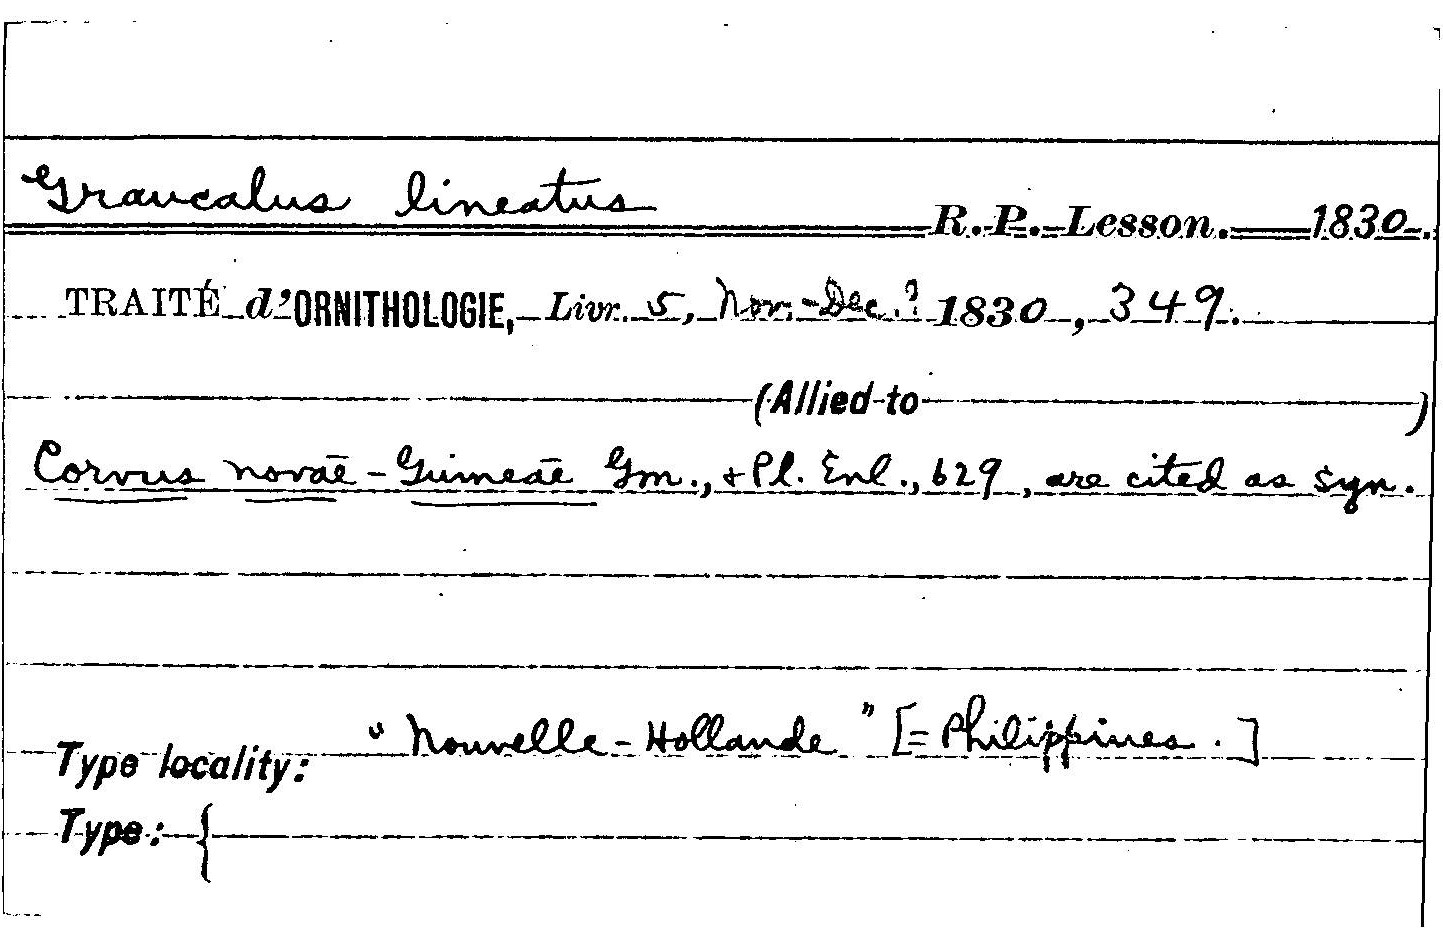 Graucalus lineatus R. P. Lesson. 1830.
TRAITÉ d'ORNITHOLOGIE, Livr. 5, Nov.-Dec.? 1830, 349.
(Allied to )
Corvus novae-Guineae Gm., + Pl. Enl., 629, are cited as syn.
Type locality: "Nouvelle-Hollande" [= Philippines.]
Type: {